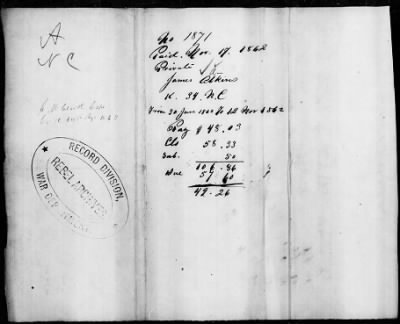 A
N C
No 1871
Paid. Nov. 17. 1862
Private
James Atkins
K. 34. N.C
From 30 June 1862 to Nov 1862
Pay $ 48.03
Clo 58.33
Sub. 50
106.86
Due 57 60
49.26
RECORD DIVISION,
REBEL ARCHIVES,
WAR DEPARTMENT